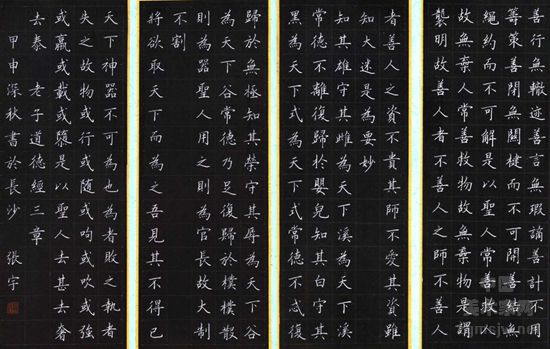 善行無轍迹善言無瑕謫善計不用
籌策善閉無關楗而不可開善結無
繩約而不可解是以聖人常善救人
故無棄人常善救物故無棄物是謂
襲明故善人者不善人之師不善人
者善人之資不貴其師不愛其資雖
知大迷是為要妙
知其雄守其雌為天下溪為天下溪
常德不離復歸於嬰兒知其白守其
黑為天下式為天下式常德不忒復
歸於無極知其榮守其辱為天下谷
為天下谷常德乃足復歸於樸樸散
則為器聖人用之則為官長故大制
不割
將欲取天下而為之吾見其不得已
天下神器不可為也為者敗之執者
失之故物或行或隨或呴或吹或強
或羸或載或隳是以聖人去甚去奢
去泰 老子道德經三章
甲申深秋書於長沙 張宇